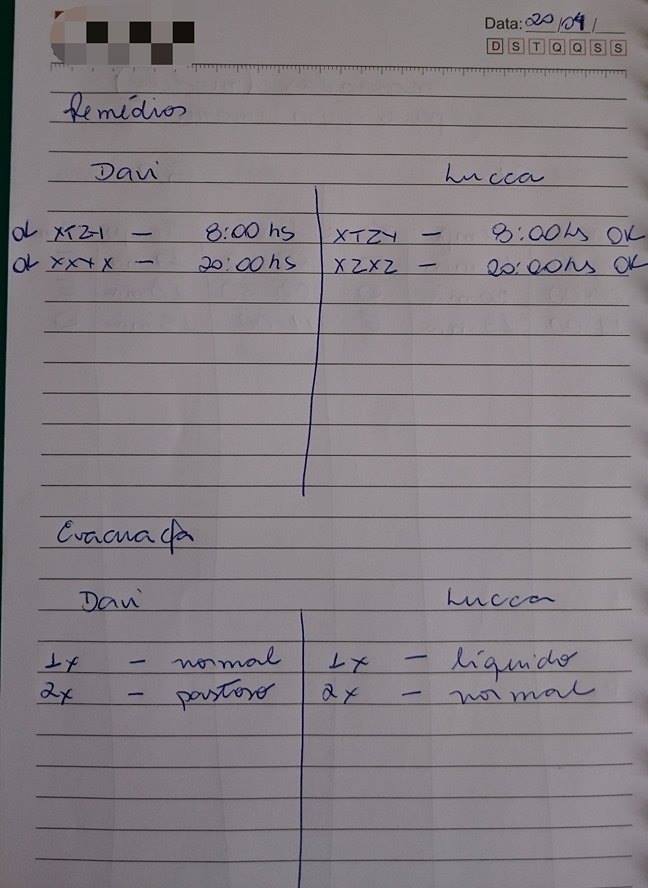 Data: 20/04/
D S T Q Q S S
Remédios
Davi Lucca
OK XTZY - 8:00 hs XTZY - 8:00hs OK
OK XXYX - 20:00 hs XZXZ - 20:00hs OK
Evacuação
Davi Lucca
1x - normal 1x - líquido
2x - pastoso 2x - normal